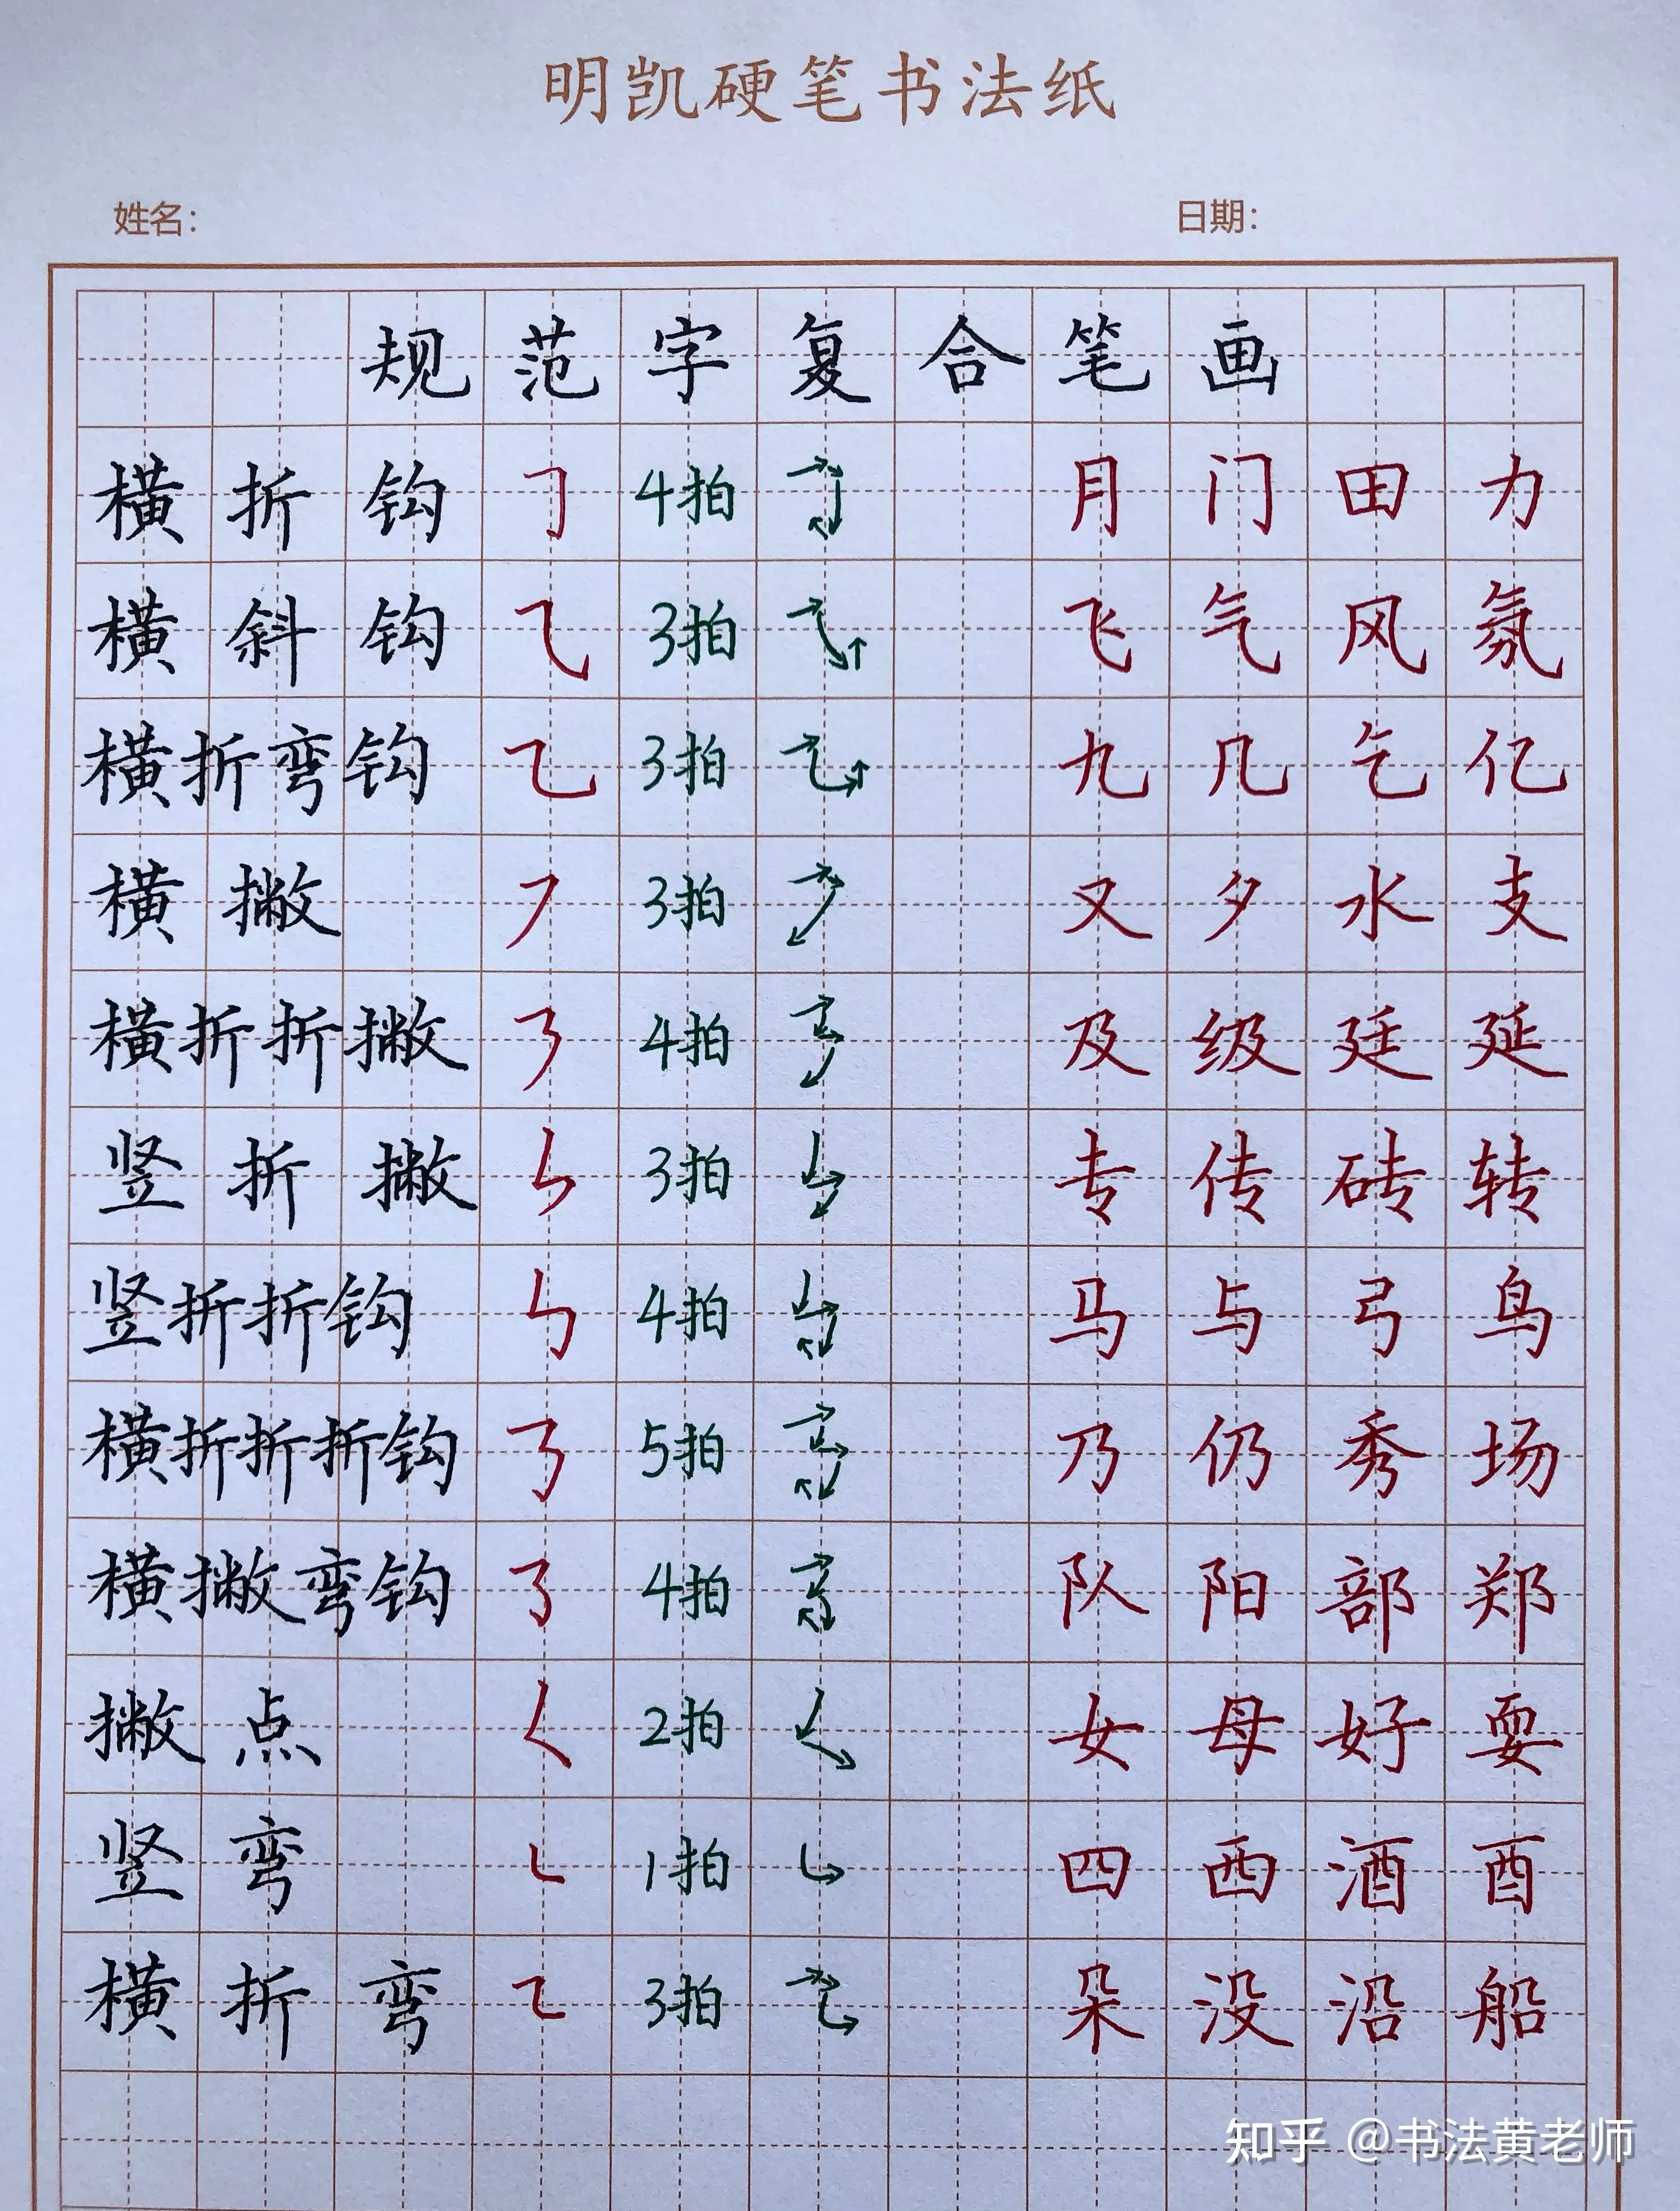 明凯硬笔书法纸
姓名： 日期：
规范字复合笔画
横折钩 ㇆ 4拍 月门田力
横斜钩 ⺄ 3拍 飞气风氛
横折弯钩 乙 3拍 九几乞亿
横撇 ㇇ 3拍 又夕水支
横折折撇 ㇋ 4拍 及级廷延
竖折撇 ㇞ 3拍 专传砖转
竖折折钩 ㇉ 4拍 马与弓鸟
横折折折钩 ㇡ 5拍 乃仍秀场
横撇弯钩 ㇌ 4拍 队阳部郑
撇点 ㇛ 2拍 女母好耍
竖弯 ㇄ 1拍 四西酒酉
横折弯 ㇍ 3拍 朵没沿船
知乎 @书法黄老师